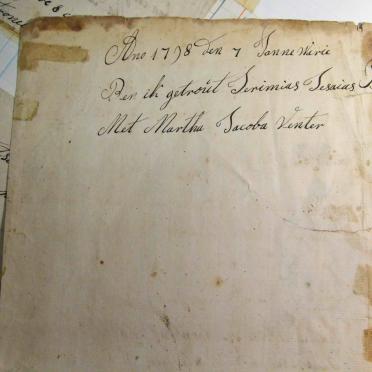 Ano 1798 den 7 Jannewirie
Ben ik getrout Jerimias Jesaias
Met Martha Jacoba Venter